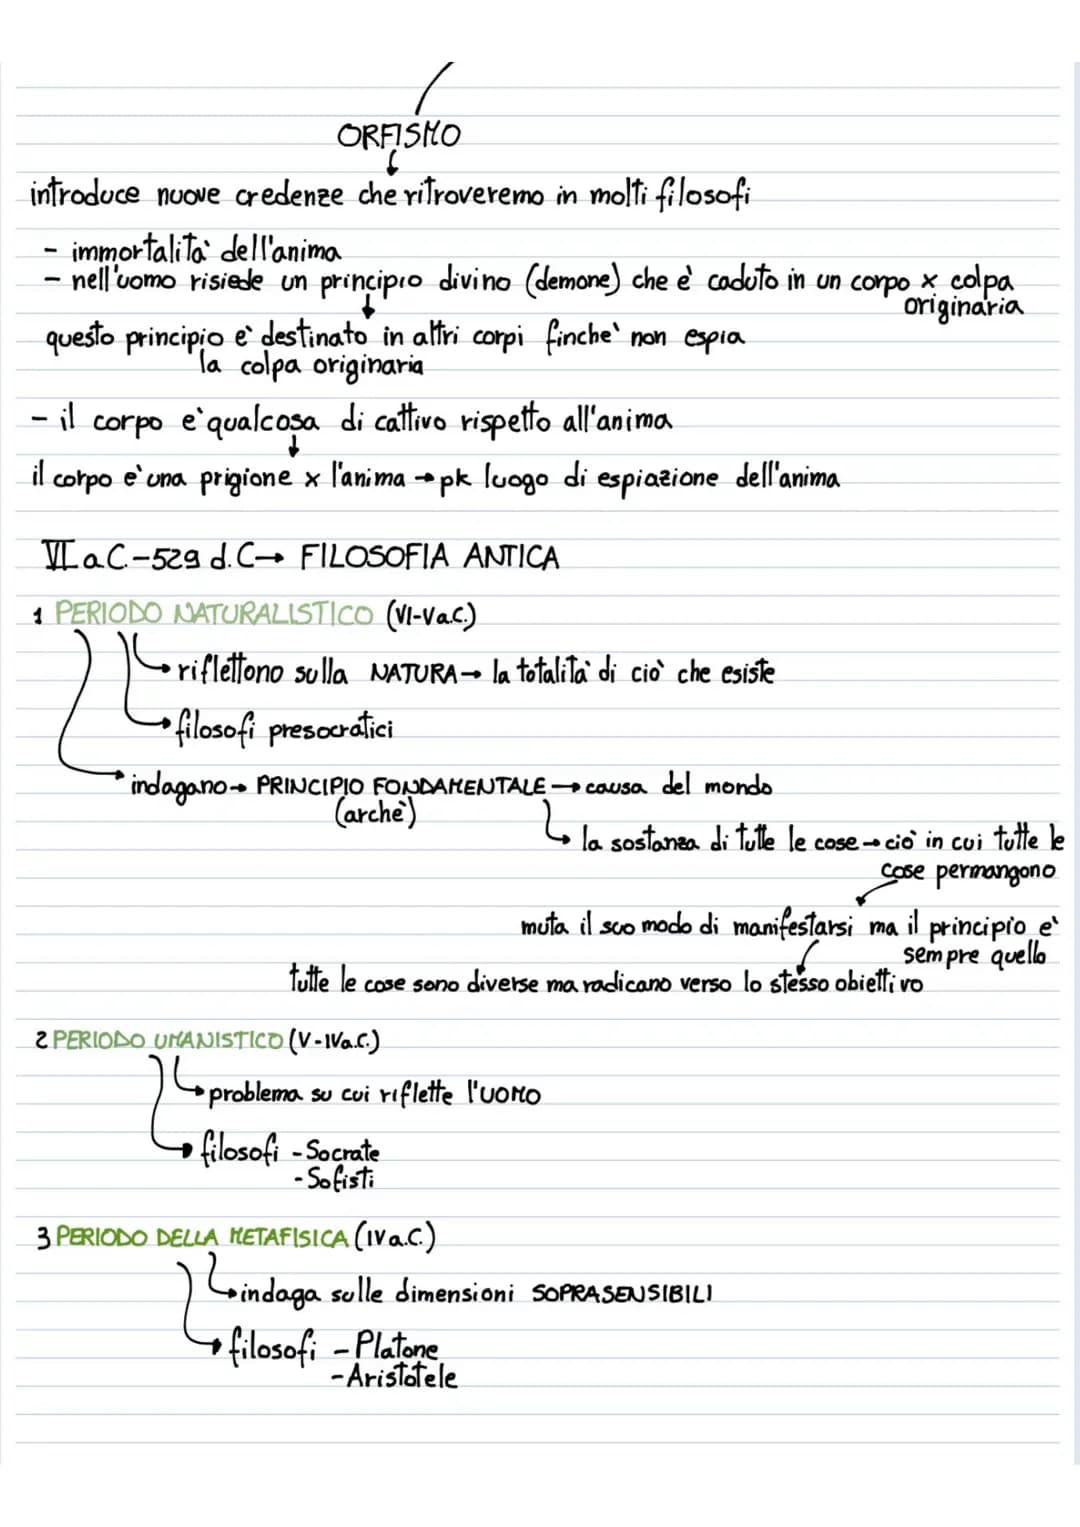 ORFISMO
introduce nuove credenze che ritroveremo in molti filosofi
- immortalità dell'anima
- nell'uomo risiede un principio divino (demone) che è caduto in un corpo x colpa
originaria
questo principio è destinato in altri corpi finchè non espia
la colpa originaria
- il corpo è qualcosa di cattivo rispetto all'anima
il corpo è una prigione x l'anima → pk luogo di espiazione dell'anima
VI a.C. - 529 d.C → FILOSOFIA ANTICA
1 PERIODO NATURALISTICO (VI-V a.C.)
riflettono sulla NATURA → la totalità di ciò che esiste
filosofi presocratici
indagano → PRINCIPIO FONDAMENTALE → causa del mondo
(archè)
la sostanza di tutte le cose → ciò in cui tutte le
cose permangono
muta il suo modo di manifestarsi ma il principio è
sempre quello
tutte le cose sono diverse ma radicano verso lo stesso obiettivo
2 PERIODO UMANISTICO (V-IV a.C.)
problema su cui riflette l'UOMO
filosofi - Socrate
- Sofisti
3 PERIODO DELLA METAFISICA (IV a.C.)
indaga sulle dimensioni SOPRASENSIBILI
filosofi - Platone
- Aristotele